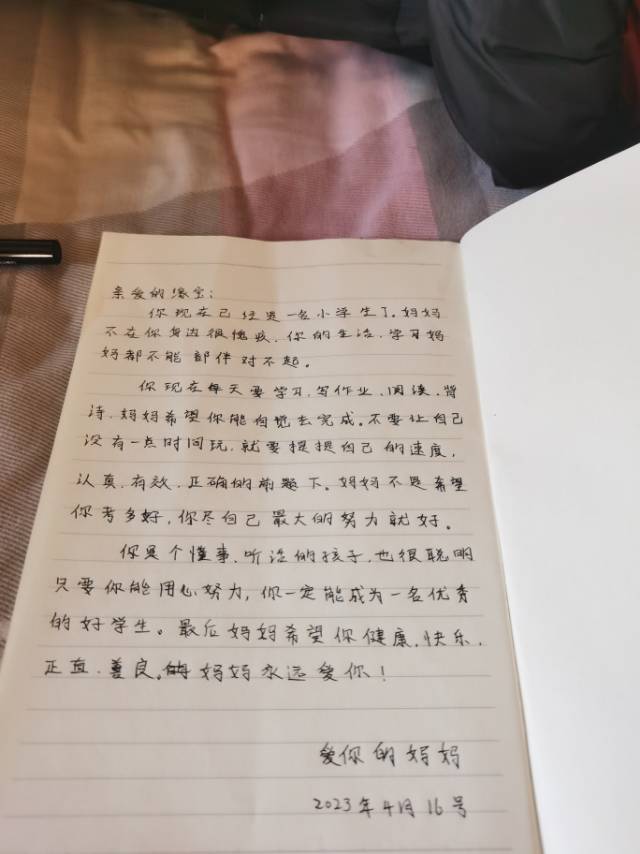 亲爱的缘宝:
你现在已经是一名小学生了。妈妈
不在你身边很愧疚、你的生活、学习妈
妈都不能部伴对不起。
你现在每天要学习、写作业、阅读、背
诗、妈妈希望你能自觉去完成。不要让自己
没有一点时间玩,就要提提自己的速度,
认真、有效、正确的前题下。妈妈不是希望
你考多好,你尽自己最大的努力就好。
你是个懂事、听话的孩子,也很聪明
只要你能用心努力,你一定能成为一名优秀
的好学生。最后妈妈希望你健康、快乐、
正直、善良。妈妈永远爱你!
爱你的妈妈
2023年4月16号